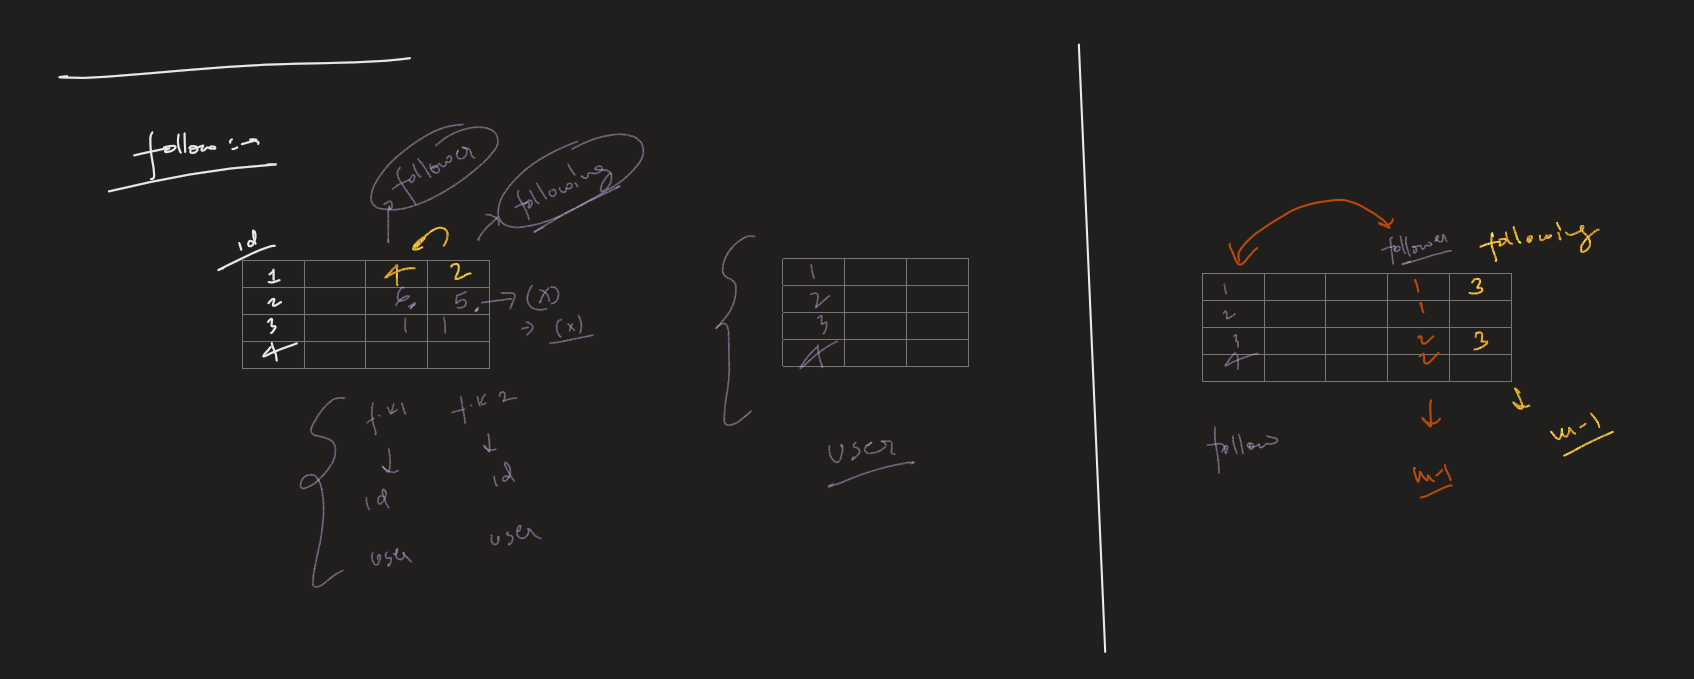 follow :→
follower
following
id
1 4 2
2 6. 5. → (x)
3 1 1 → (x)
4
f.k1 f.k2
id id
user user
1
2
3
4
user
follower following
1 1 3
2 1
3 2 3
4 2
follow
m-1
m-1